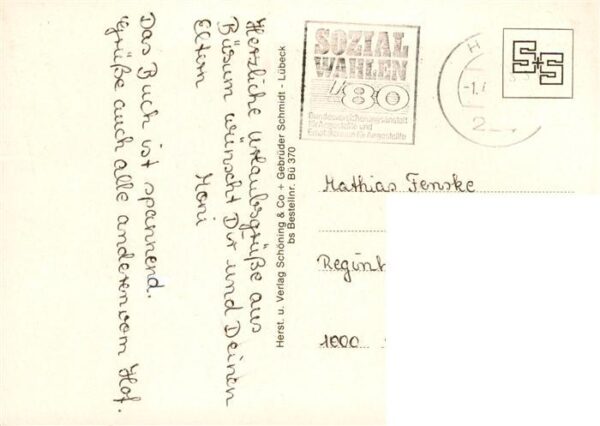 Herzliche Urlaubsgrüße aus
Büsum wünscht Dir und Deinen
Eltern Moni
Das Buch ist spannend.
Grüße auch alle anderen vom Hof.
Herst. u. Verlag Schöning & Co + Gebrüder Schmidt - Lübeck
bs Bestellnr. Bü 370
SOZIAL
WAHLEN
'80
Bundesversicherungsanstalt
für Angestellte und
Ersatzkassen für Angestellte
H
-1.
2
S+S
Mathias Fenske
Regint
1000